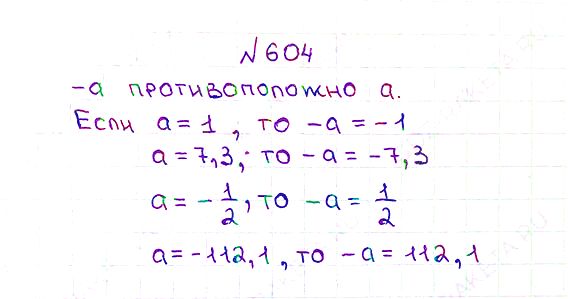 № 604
-a противоположно a.
Если a = 1 , то -a = -1
a = 7,3; то -a = -7,3
a = -1/2, то -a = 1/2
a = -112,1 , то -a = 112,1